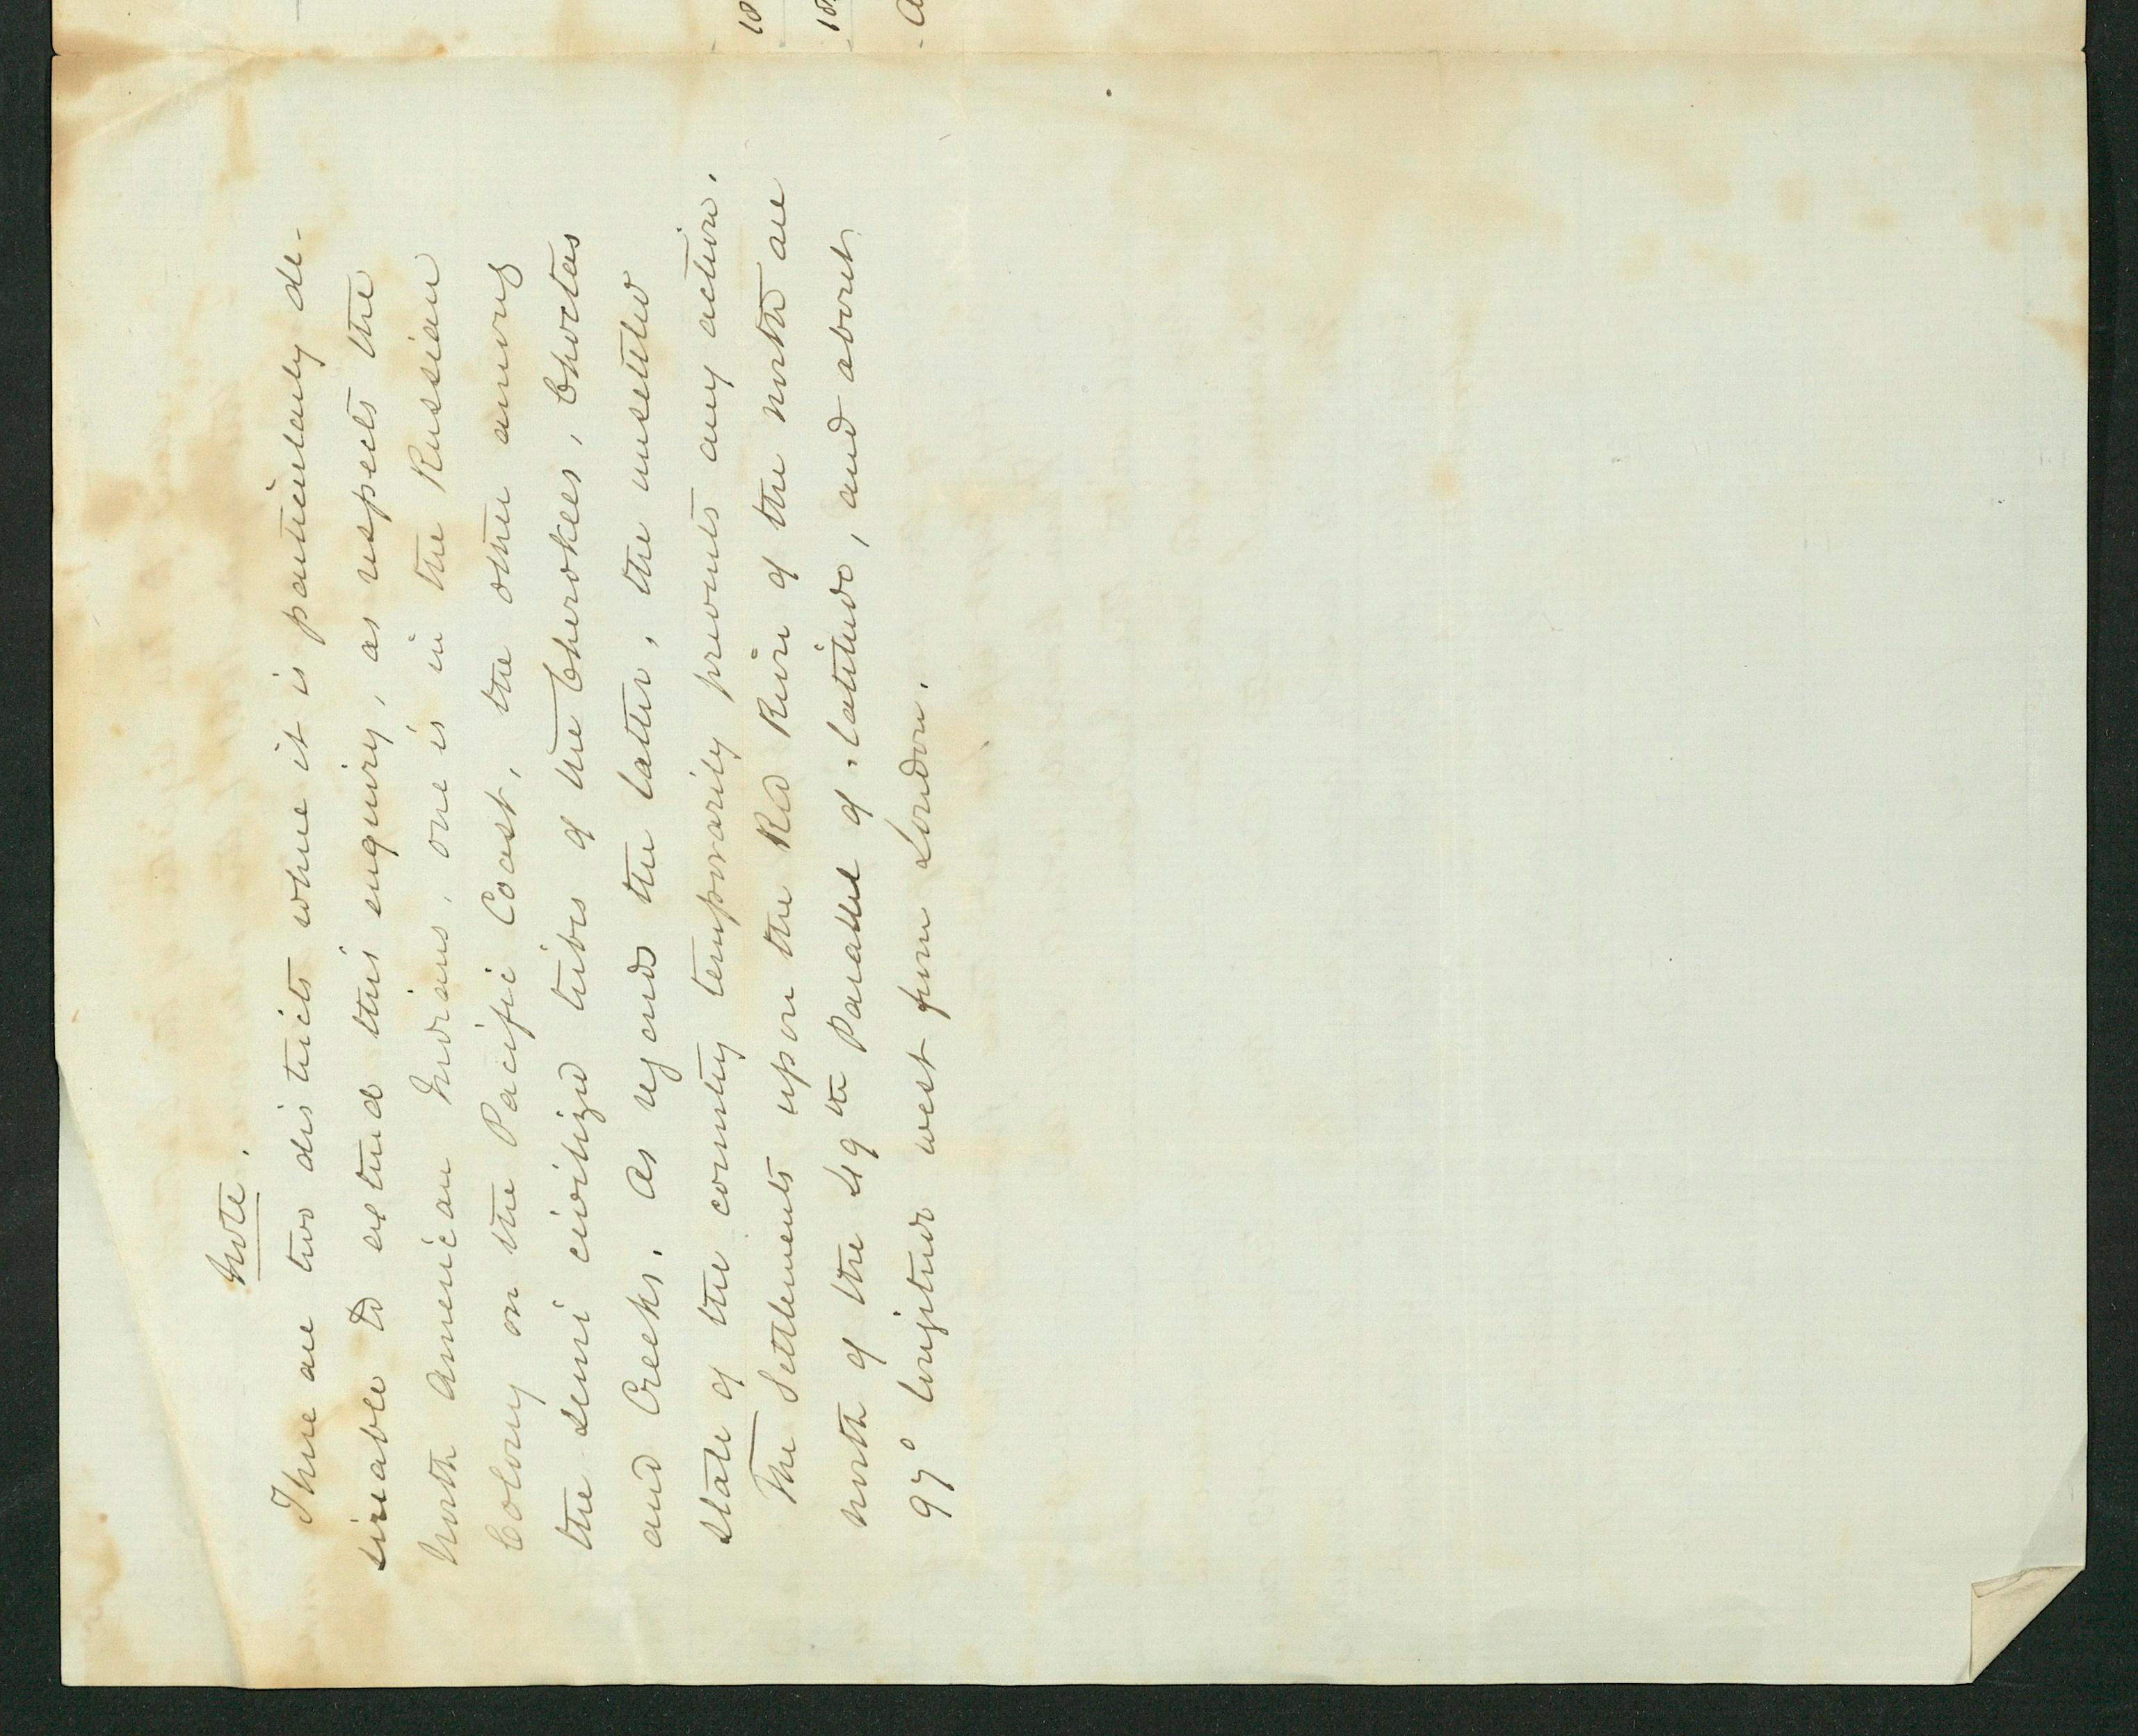 Note.
There are two districts where it is particularly de-
sireable to extend this enquiry, as respects the
North American Indians, one is in the Russian
Colony on the Pacific Coast, the other among
the semi civilized tribes of the Cherokees, Choctas
and Creeks. As regards the latter, the unsettled
state of the country temporarily prevents any action.
The Settlements upon the Red River of the north are
north of the 49th Parallel of latitude, and about
97° longitude west from London.
18
18